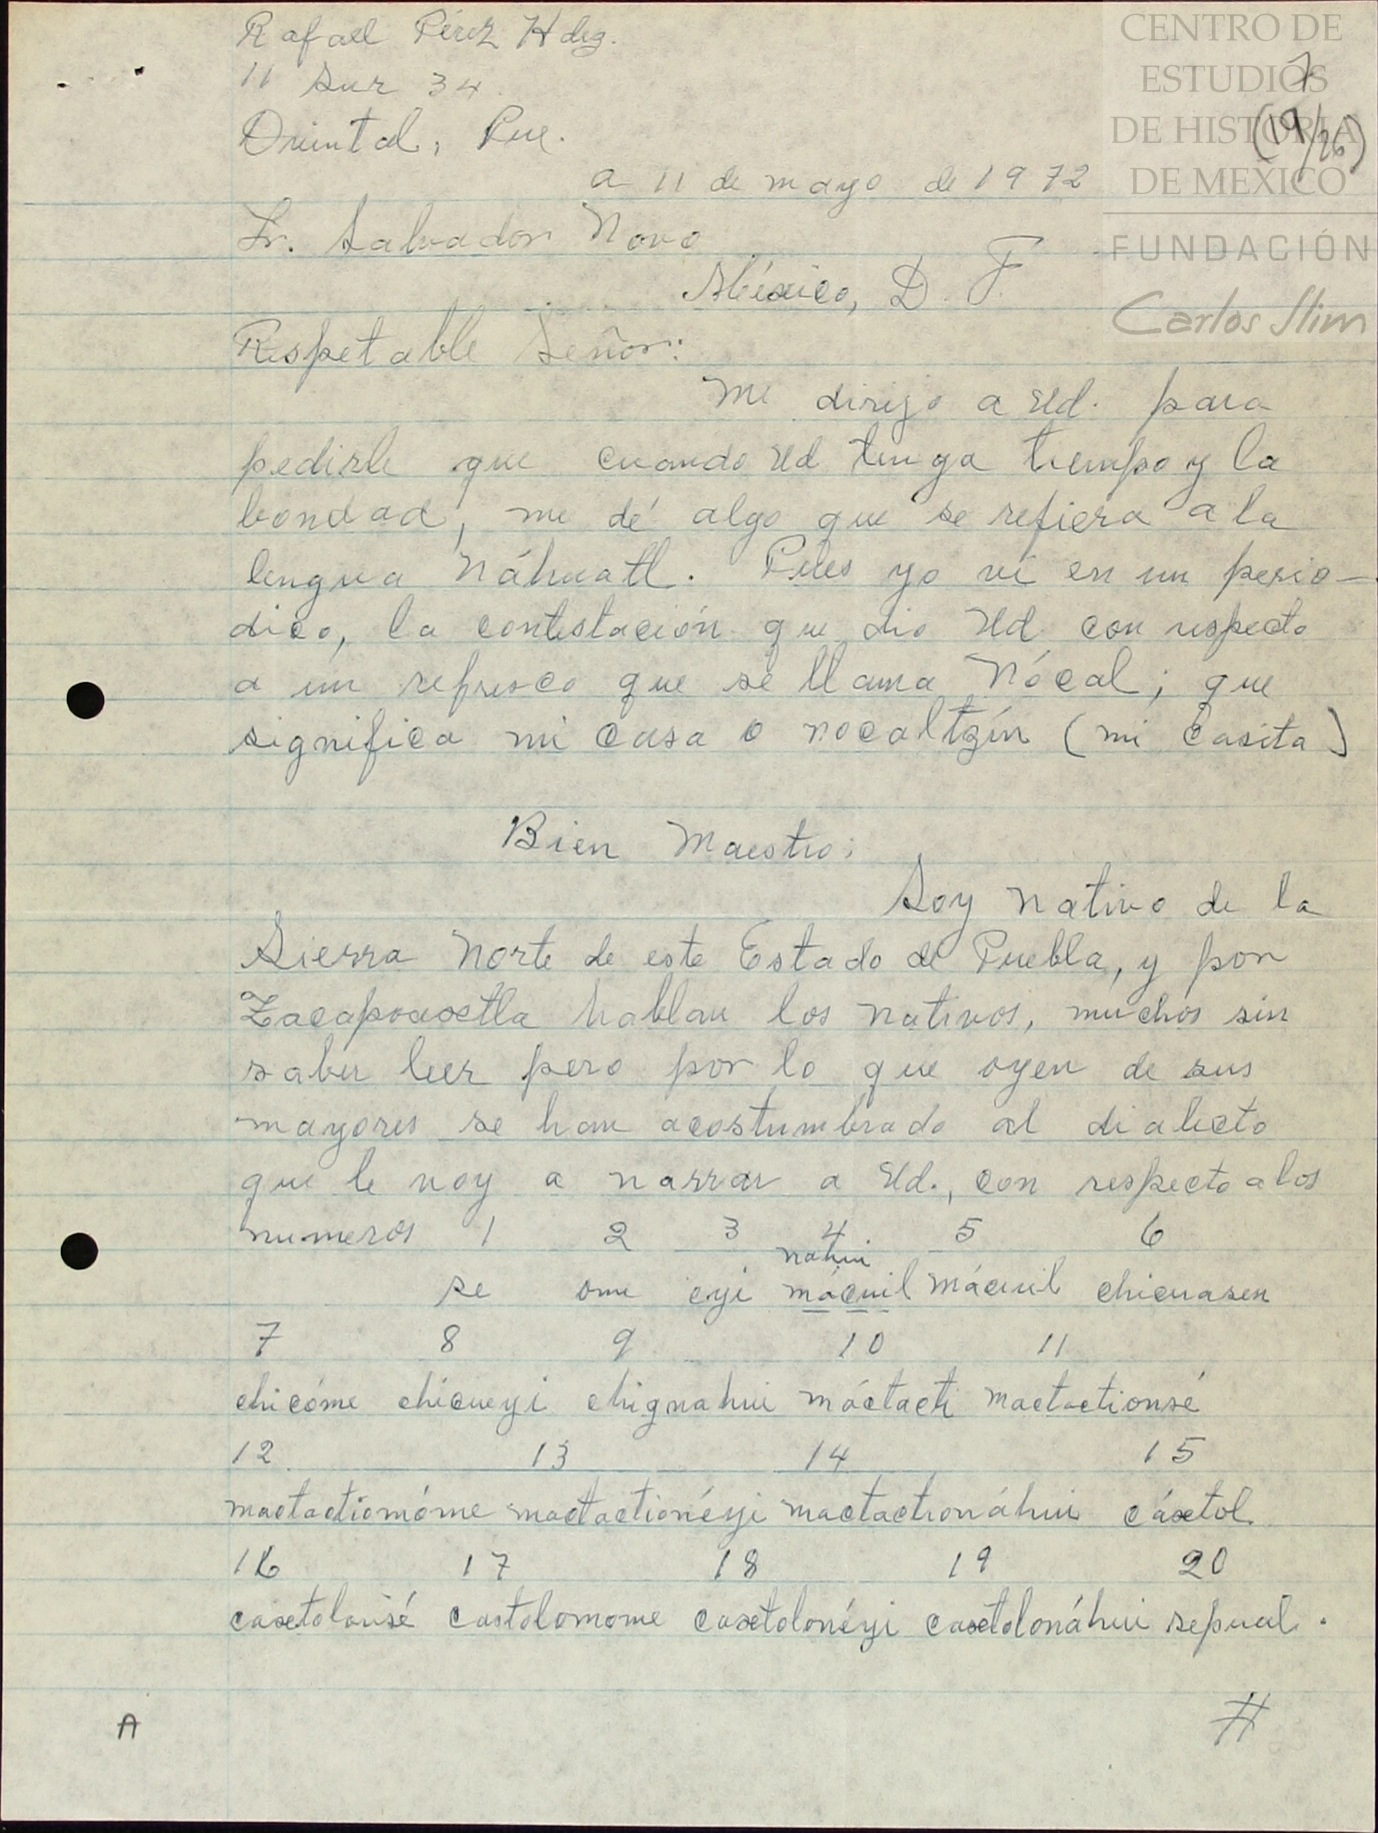 Rafael Pérez Hdez.
11 Sur 34.
Oriental, Pue.
a 11 de mayo de 1972
Sr. Salvador Novo
México, D. F.
Respetable Señor:
Me dirijo a Ud. para
pedirle que cuando Ud tenga tiempo y la
bondad, me dé algo que se refiera a la
lengua Náhuatl. Pues yo vi en un perio-
dico, la contestación que dio Ud con respecto
a un refresco que se llama Nócal; que
significa mi casa o nocaltzín (mi casita)
Bien Maestro;
Soy nativo de la
Sierra Norte de este Estado de Puebla, y por
Zacapoaxtla hablan los nativos, muchos sin
saber leer pero por lo que oyen de sus
mayores se han acostumbrado al dialecto
que le voy a narrar a Ud., con respecto a los
numeros 1 2 3 4 5 6
nahui
se ome eyi mácuil mácuil chicuasen
7 8 9 10 11
chicóme chicueyi chignahui máctacti mactactionsé
12 13 14 15
mactactiomóme mactactionéyi mactactionáhui cáxtol
16 17 18 19 20
caxtolonsé castolomome caxtolonéyi caxtolonáhui sepual.
#
A
CENTRO DE
ESTUDIOS
DE HISTORIA
DE MÉXICO
FUNDACIÓN
Carlos Slim
7
(19/26)